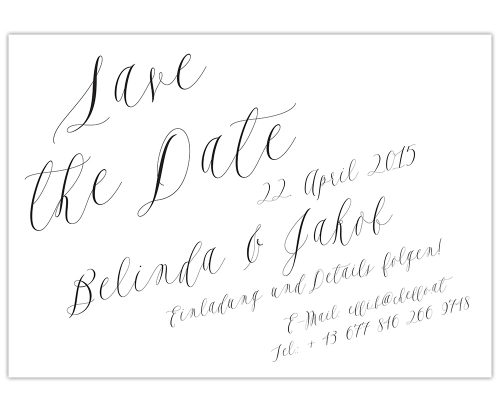 Save
the Date
22. April 2015
Belinda & Jakob
Einladung und Details folgen!
E-Mail:
Tel.: + 43 677 816 266 2718